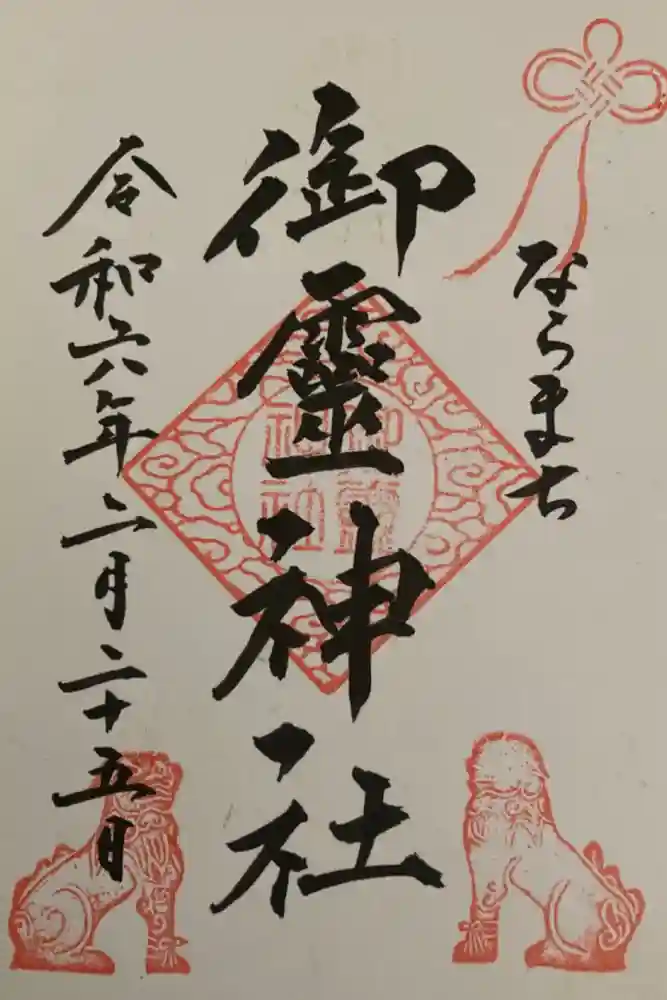 ならまち
御靈神社
令和六年二月二十五日